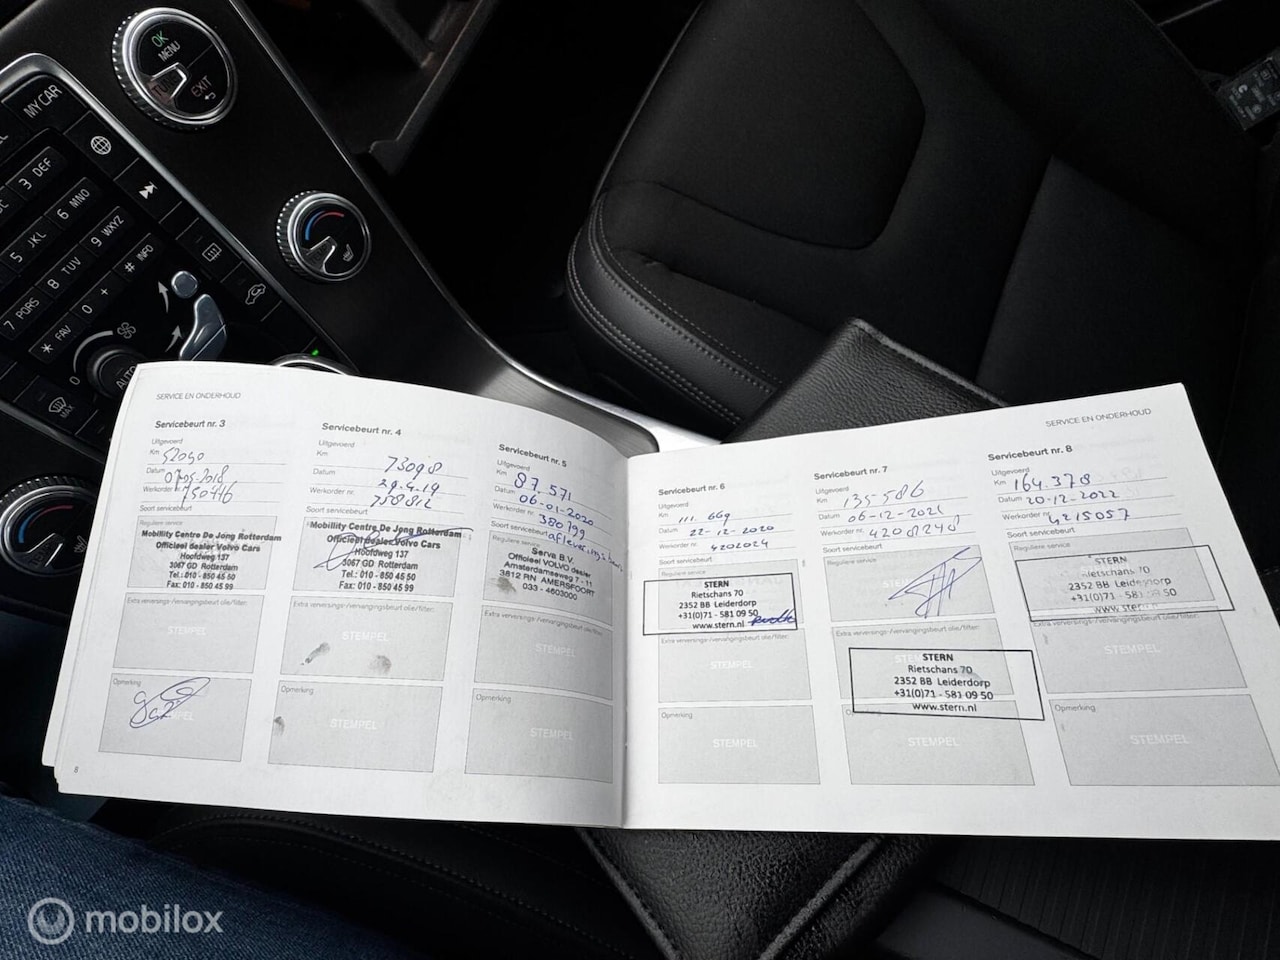 OK
MENU
TUNE
EXIT
MY CAR
3 DEF
6 MNO
5 JKL
9 WXYZ
8 TUV
# INFO
7 PQRS
0 +
* FAV
0
AUTO
MAX
SERVICE EN ONDERHOUD
Servicebeurt nr. 3
Uitgevoerd
Km 52090
Datum
Werkorder nr. 750416
Soort servicebeurt
Reguliere service
Mobility Centre De Jong Rotterdam
Officieel dealer Volvo Cars
Hoofdweg 137
3067 GD Rotterdam
Tel.: 010 - 850 45 50
Fax: 010 - 850 45 99
Extra verversings-/vervangingsbeurt olie/filter:
STEMPEL
Opmerking
STEMPEL
8
Servicebeurt nr. 4
Uitgevoerd
Km 73098
Datum 29-4-19
Werkorder nr. 758812
Soort servicebeurt
Mobility Centre De Jong Rotterdam
Officieel dealer Volvo Cars
Hoofdweg 137
3067 GD Rotterdam
Tel.: 010 - 850 45 50
Fax: 010 - 850 45 99
Extra verversings-/vervangingsbeurt olie/filter:
STEMPEL
Opmerking
STEMPEL
Servicebeurt nr. 5
Uitgevoerd
Km 87.571
Datum 06-01-2020
Werkorder nr. 380799
Soort servicebeurt
Serva B.V.
Officieel VOLVO dealer
Amsterdamseweg 7 - 11
3812 RN AMERSFOORT
033 - 4603000
Extra verversings-/vervangingsbeurt olie/filter:
STEMPEL
Opmerking
STEMPEL
SERVICE EN ONDERHOUD
Servicebeurt nr. 6
Uitgevoerd
Km 111.669
Datum 22-12-2020
Werkorder nr. 4202024
Soort servicebeurt
Reguliere service
STERN
Rietschans 70
2352 BB Leiderdorp
+31(0)71 - 581 09 50
www.stern.nl
Extra verversings-/vervangingsbeurt olie/filter:
STEMPEL
Opmerking
STEMPEL
Servicebeurt nr. 7
Uitgevoerd
Km 135-586
Datum 06-12-2021
Werkorder nr. 4208248
Soort servicebeurt
Reguliere service
Extra verversings-/vervangingsbeurt olie/filter:
STERN
Rietschans 70
2352 BB Leiderdorp
+31(0)71 - 581 09 50
www.stern.nl
STEMPEL
Servicebeurt nr. 8
Uitgevoerd
Km 164.378
Datum 20-12-2022
Werkorder nr. 4215057
Soort servicebeurt
Reguliere service
STERN
Rietschans 70
2352 BB Leiderdorp
+31(0)71 - 581 09 50
www.stern.nl
Extra verversings-/vervangingsbeurt olie/filter:
STEMPEL
Opmerking
STEMPEL
mobilox